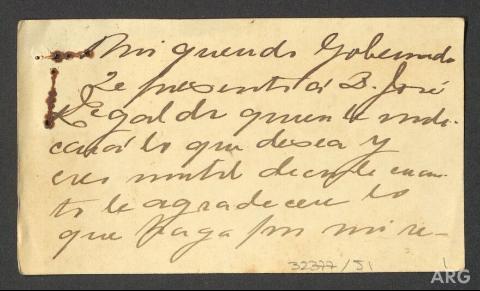 Mi querido Gobernado
Le presento á D. José
Legalde quien le indi-
cará lo que desea y
creo inutil decirle cuan-
to le agradeceré lo
que haga por mi re-
32377/51
ARG